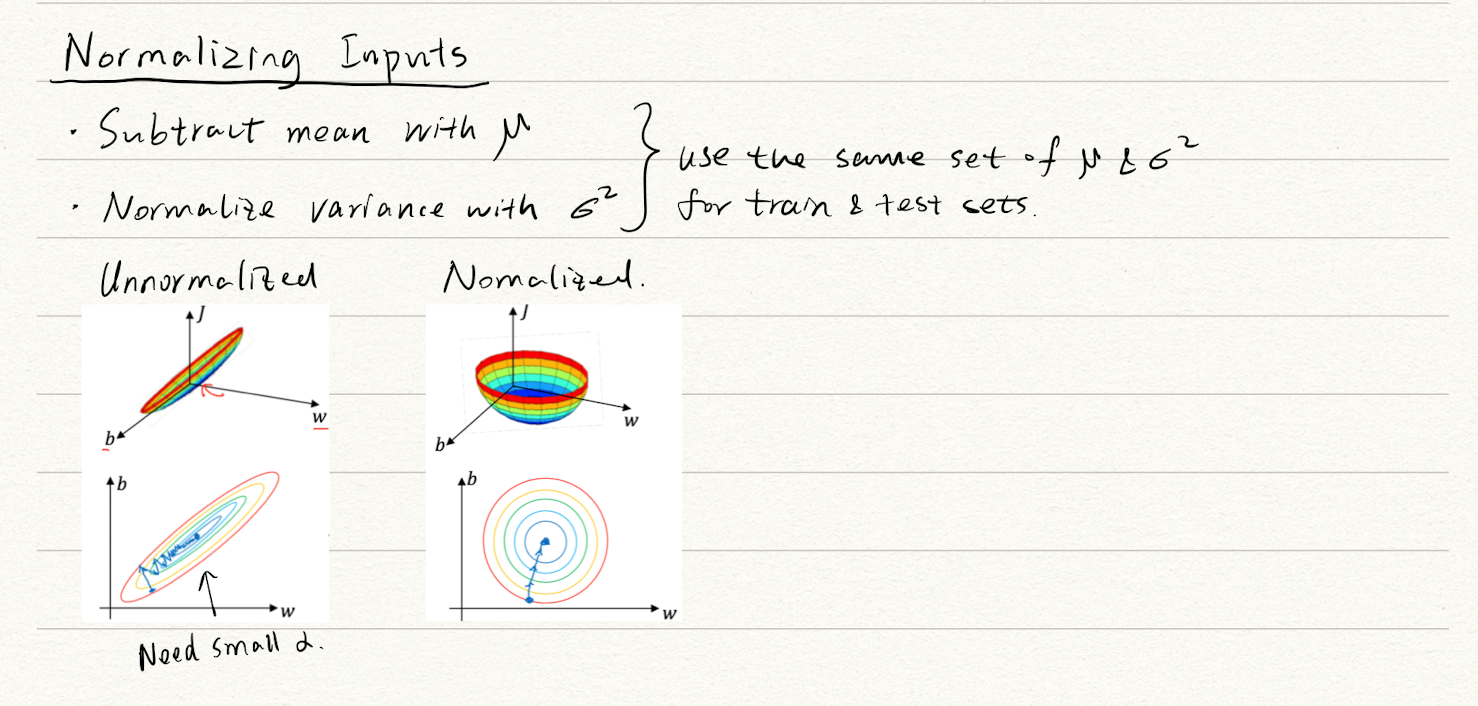 Normalizing Inputs
· Subtract mean with μ
· Normalize variance with σ²
use the same set of μ & σ²
for train & test sets.
Unnormalized
Nomalized.
J
w
b
J
w
b
b
w
b
w
Need small α.